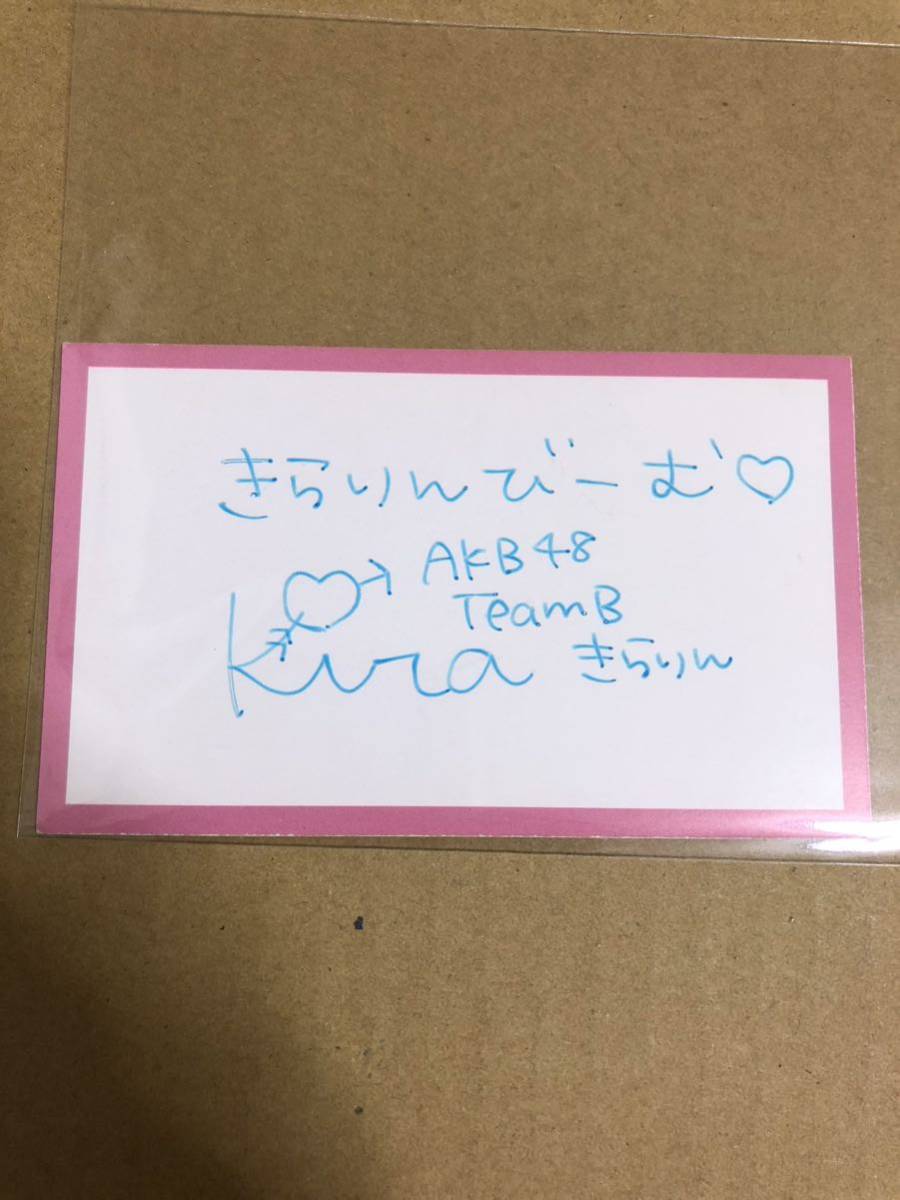 きらりんびーむ♡
AKB48
TeamB
Kira きらりん